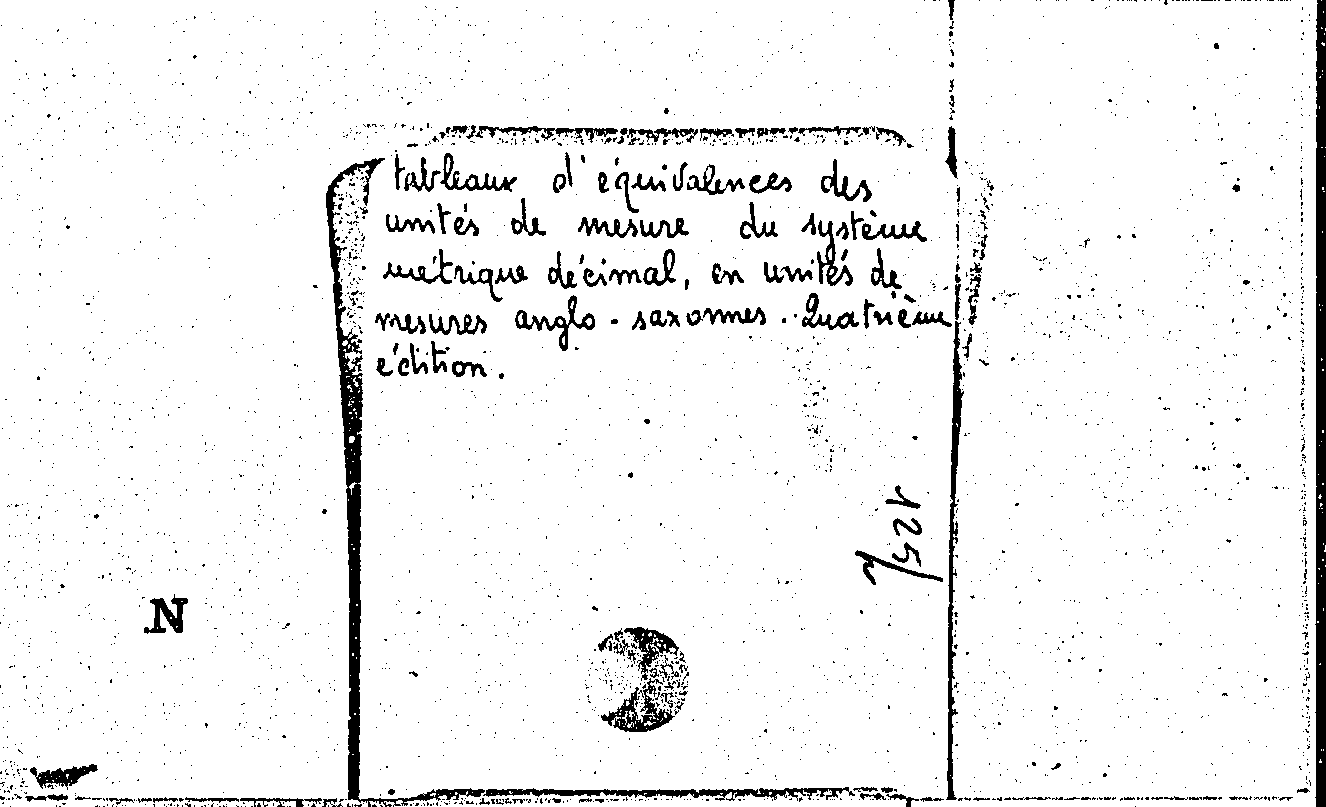 tableaux d'équivalences des
unités de mesure du système
métrique décimal, en unités de
mesures anglo-saxonnes. Quatrième
édition.
125/
N